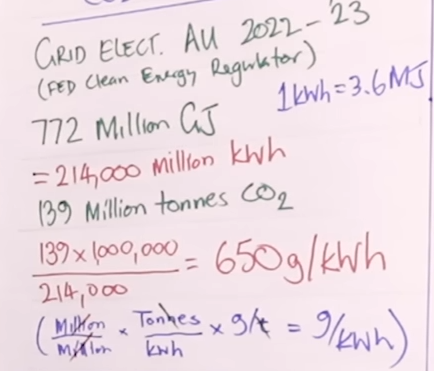 GRID ELECT. AU 2022-23
(FED Clean Energy Regulator)
1kWh=3.6MJ
772 Million GJ
=214,000 Million kWh
139 Million tonnes CO2
139x1,000,000
214,000
= 650g/kWh
(Million/Million x Tonnes/kWh x g/t = g/kWh)